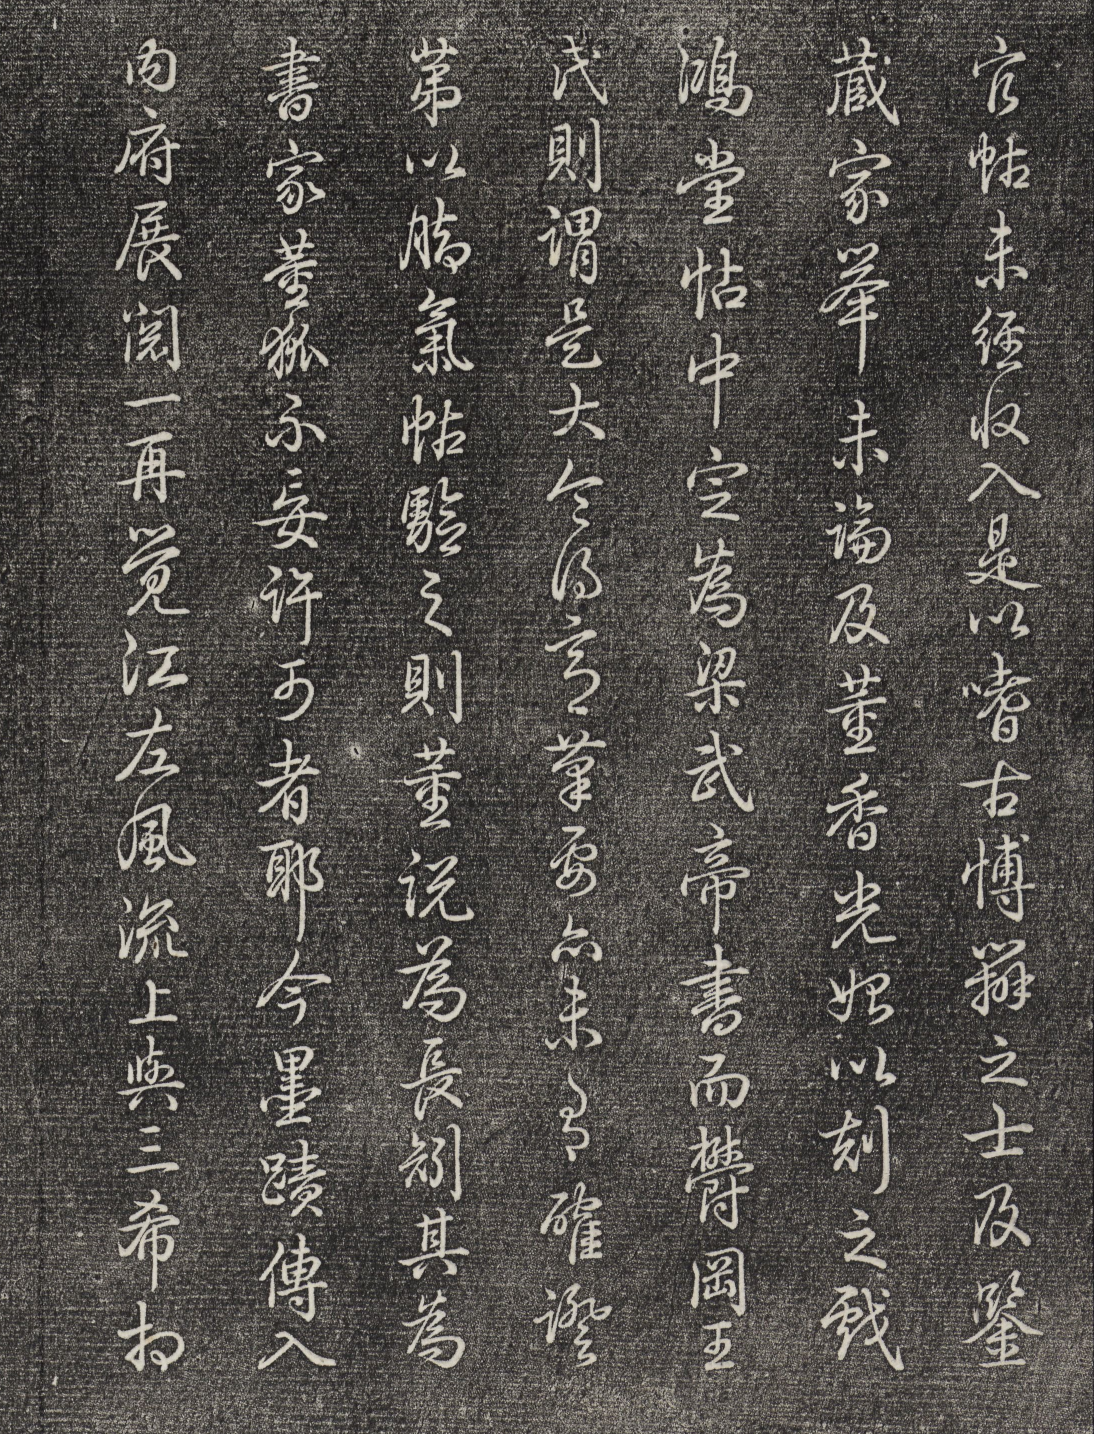 官帖未經收入是以嗜古博辯之士及鑒
藏家举未論及董香光始以刻之戲
鴻堂帖中定為梁武帝書而欝岡王
氏則謂是大令得意筆要亦未有確證
第以脑氣帖驗之則董說為長矧其為
書家董狐不妄許可者耶今墨蹟傳入
內府展閱一再覺江左風流上與三希相